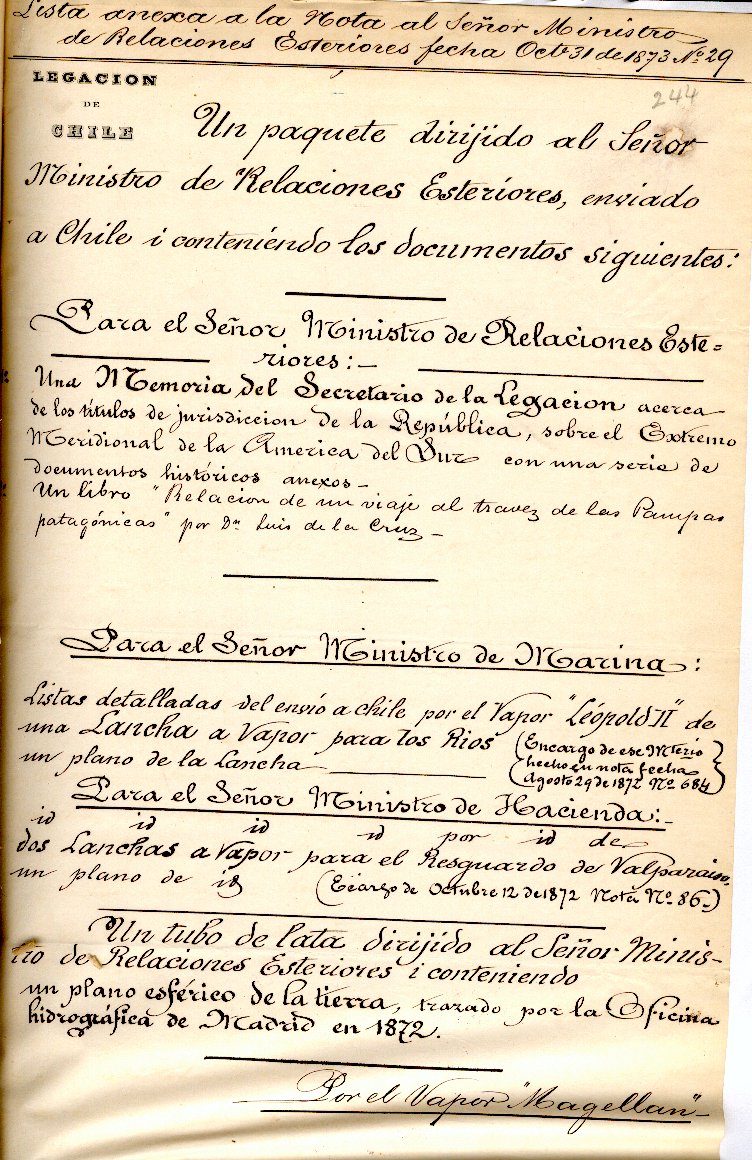 Lista anexa a la Nota al Señor Ministro
de Relaciones Esteriores fecha Octe 31 de 1873 No. 29
244
LEGACION
DE
CHILE
Un paquete dirijido al Señor
Ministro de Relaciones Esteriores, enviado
a Chile i conteniendo los documentos siguientes:
Para el Señor Ministro de Relaciones Este=
riores:—
Una Memoria del Secretario de la Legacion acerca
de los títulos de jurisdiccion de la República, sobre el Extremo
Meridional de la America del Sur con una serie de
documentos históricos anexos—
Un libro "Relacion de un viaje al travez de las Pampas
patagónicas" por Dn. Luis de la Cruz—
Para el Señor Ministro de Marina:
Listas detalladas del envío a Chile por el Vapor "Léopold II" de
una Lancha a Vapor para los Rios
un plano de la Lancha
(Encargo de ese Mterio
hecho en nota fecha
Agosto 29 de 1872 No. 684)
Para el Señor Ministro de Hacienda:—
id id id id por id de
dos Lanchas a Vapor para el Resguardo de Valparaiso,
un plano de id (Ecargo de Octubre 12 de 1872 Nota No. 86—)
Un tubo de lata dirijido al Señor Minis-
tro de Relaciones Esteriores i conteniendo
un plano esférico de la tierra, trazado por la Oficina
hidrográfica de Madrid en 1872.
Por el Vapor "Magellan"—